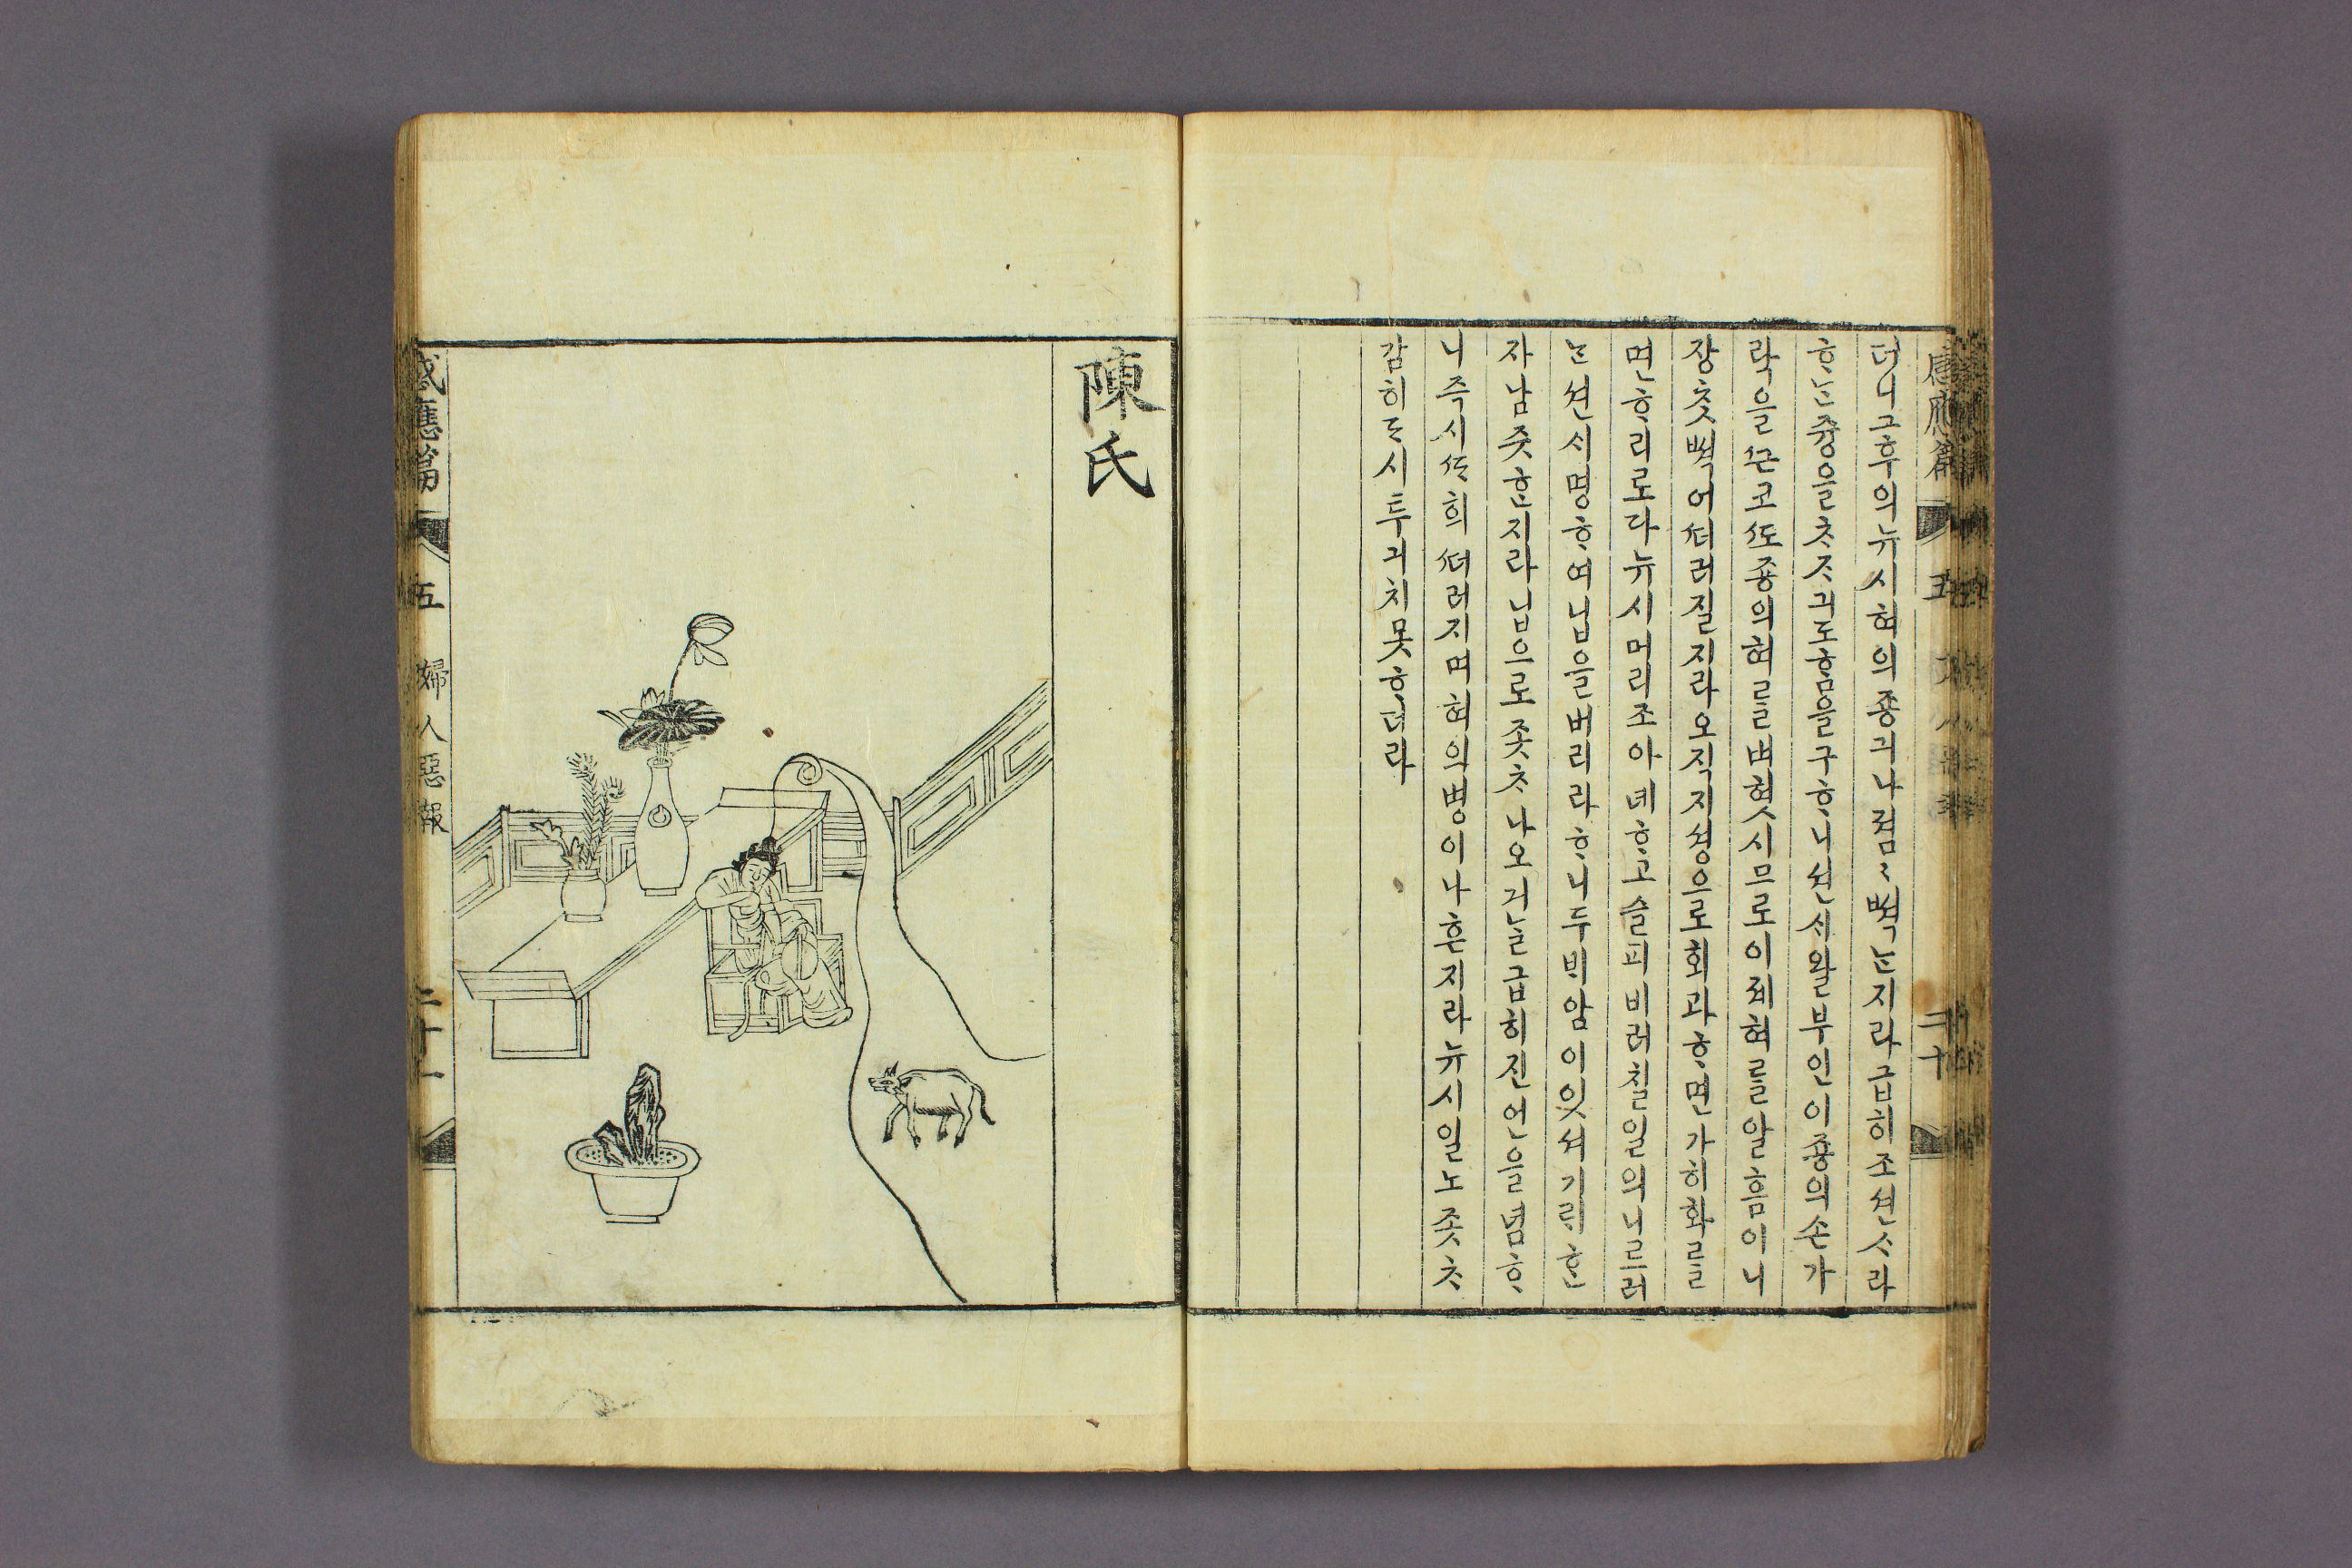 感應篇 五 二十
더니그후의뉴시혀의죵긔나졈〻쎡ᄂᆞᆫ지라급히조션ᄉᆞ라
ᄒᆞᄂᆞᆫ즁을ᄎᆞᄌᆞ긔도ᄒᆞᆷ을구ᄒᆞ니션시왈부인이죵의손가
락을ᄭᅳᆫ코ᄯᅩ죵의혀를버혓시므로이졔혀를알흠이니
장ᄎᆞᆺ쎡어ᄯᅥ러질지라오직지셩으로회과ᄒᆞ면가히화를
면ᄒᆞ리로다뉴시머리조아녜ᄒᆞ고슬피비러칠일의니르러
ᄂᆞᆫ션시명ᄒᆞ여닙을버리라ᄒᆞ니두ᄇᆡ암이잇셔기ᄅᆡᄒᆞᆫ
자남즛ᄒᆞᆫ지라닙으로좃ᄎᆞ나오거ᄂᆞᆯ급히진언을념ᄒᆞ
니즉시ᄯᅡ희ᄯᅥ러지며혀의병이나흔지라뉴시일노좃ᄎᆞ
감히ᄃᆞ시투긔치못ᄒᆞ더라
陳氏
感應篇 五 婦人惡報 二十一